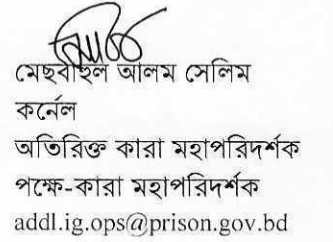 মেছবাহুল আলম সেলিম
কর্নেল
অতিরিক্ত কারা মহাপরিদর্শক
পক্ষে-কারা মহাপরিদর্শক
addl.ig.ops@prison.gov.bd